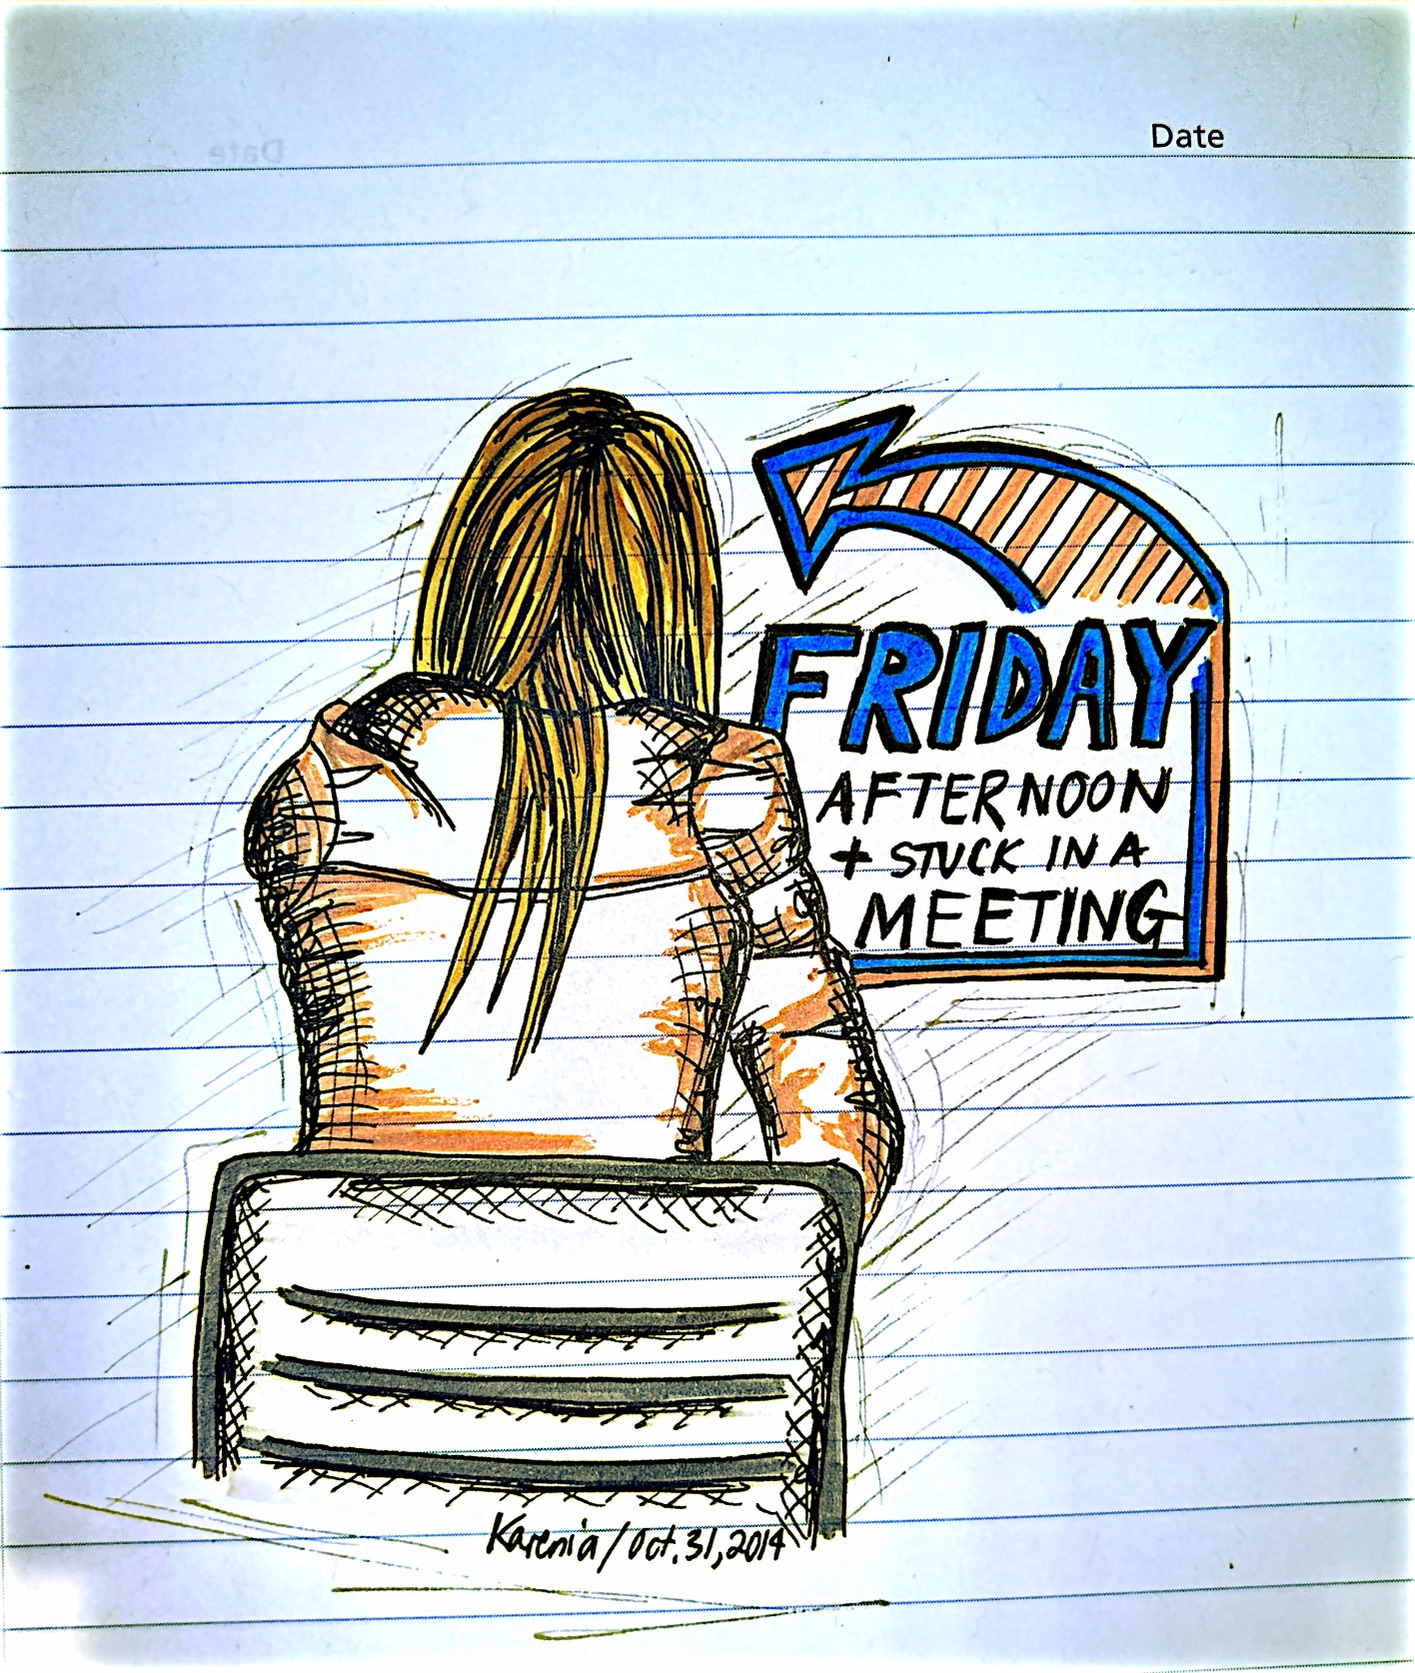 Date
FRIDAY
AFTERNOON
+ STUCK IN A
MEETING
Karenia/Oct. 31, 2014